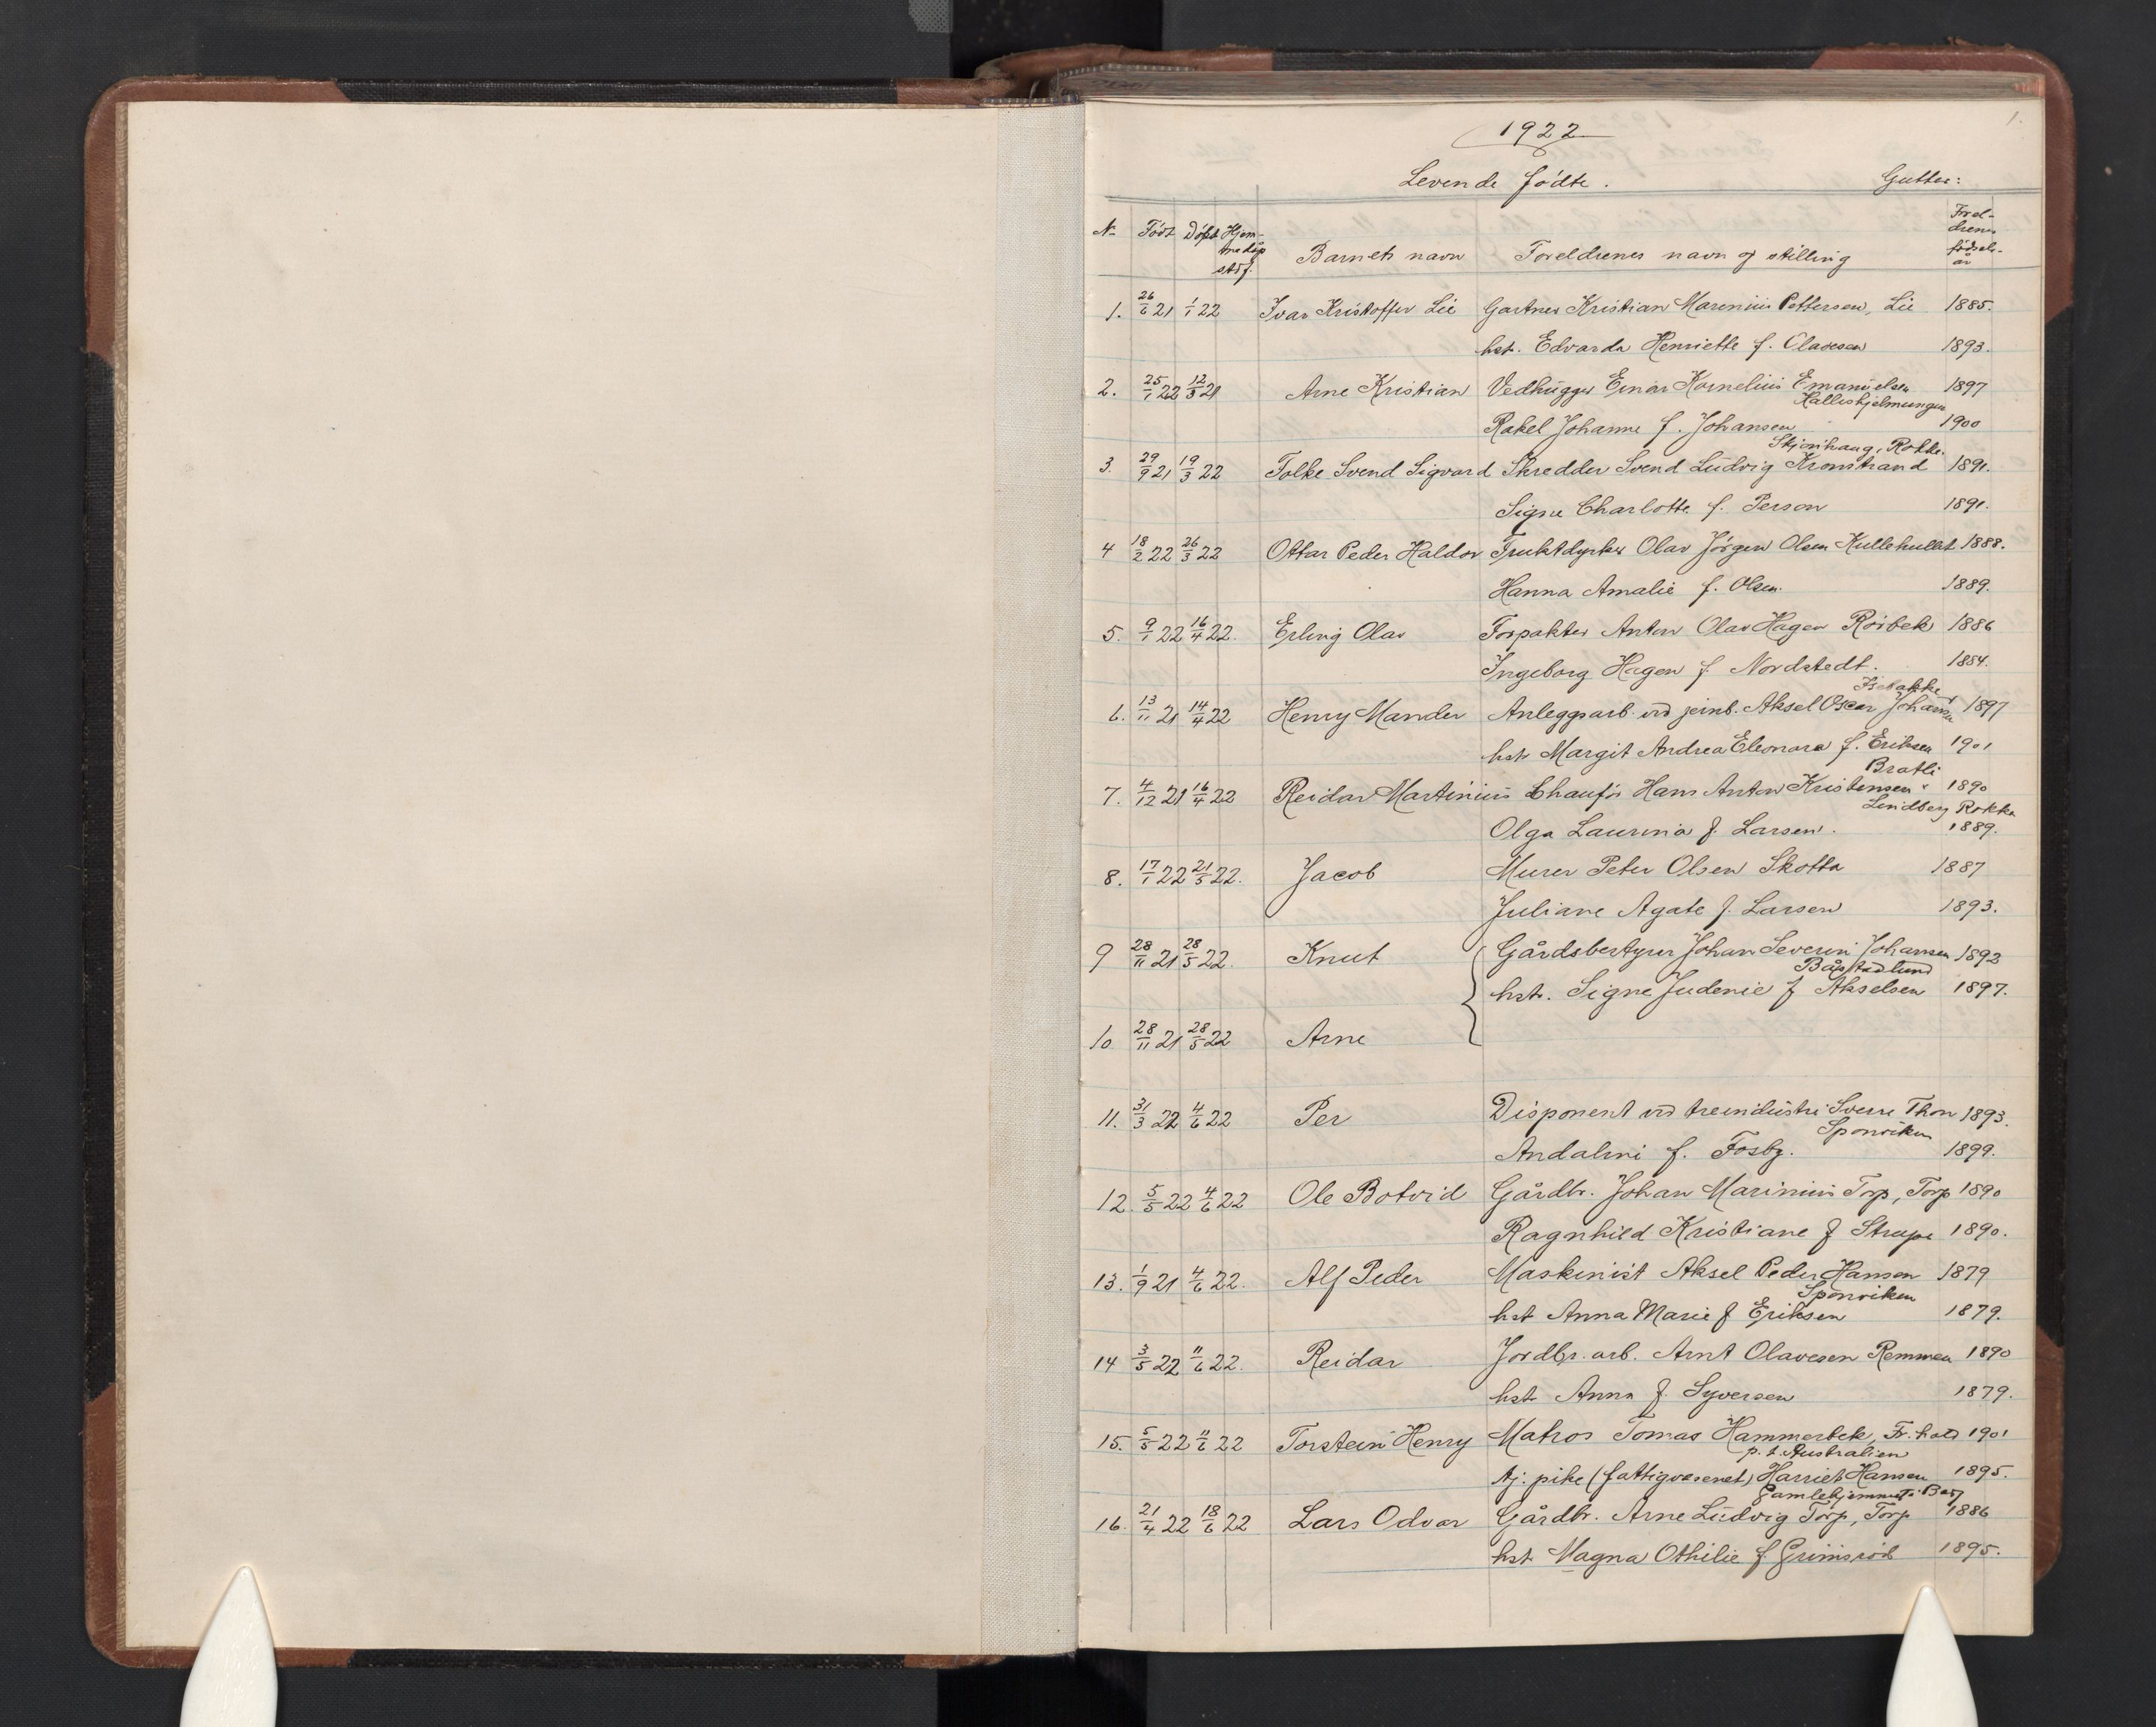 1.
1922
Levende fødte. Gutter:
No Født Døpt Hjem-
medøp
stdf. Barnets navn Foreldrenes navn og stilling Forel-
drenes
fødsels-
år
1. 26/6 21 1/1 22 Ivar Kristoffer Lie Gartner Kristian Marenius Pettersen, Lie 1885.
hst. Edvarda Henriette f. Olavesen 1893.
2. 25/1 22 12/3 21 Arne Kristian Vedhugger Einar Kornelius Emanuelsen 1897
Hallesbjelmungen
Rakel Johanne f. Johansen 1900
Skjønhaug, Rokke.
3. 29/9 21 19/3 22 Folke Svend Sigvard Skredder Svend Ludvig Kronstrand 1891.
Signe Charlotte f. Person 1891.
4 18/2 22 26/3 22 Ottar Peder Haldor Fruktdyrker Olav Jørgen Olsen Kullehullet 1888.
Hanna Amalie f. Olsen. 1889.
5. 9/1 22 16/4 22. Erling Olav Forpakter Anton Olav Hagen Rørbek 1886
Ingeborg Hagen f. Nordstedt. 1884.
Isebakke
6. 13/11 21 14/4 22 Henry Mander Anleggsarb. vd jernb. Aksel Oscar Johansen 1897
hst Margit Andrea Eleonora f. Eriksen 1901
Bratli
7. 4/12 21 16/4 22 Reidar Martinius Chaufør Hans Anton Kristensen 1890
Lindberg Rokke
Olga Laurina f. Larsen. 1889.
8. 17/1 22 21/5 22. Jacob Murer Peter Olsen Skotta 1887
Juliane Agate f. Larsen 1893.
9 28/11 21 28/5 22. Knut Gårdsbestyrer Johan Severin Johansen 1892
Båstadlund
hst. Signe Judenie f Akselsen 1897.
10 28/11 21 28/5 22 Arne
11. 31/3 22 4/6 22 Per Disponent vd treindustri Sverre Thon 1893.
Sponviken
Andalini f. Fosby. 1899.
12. 5/5 22 4/6 22 Ole Botvid Gårdbr. Johan Marinius Torp, Torp 1890
Ragnhild Kristiane f Strupe 1890.
13. 1/9 21 4/6 22. Alf Peder Maskinist Aksel Peder Hansen 1879
Sponviken
hst Anna Marie f Eriksen 1879.
14 3/5 22 11/6 22. Reidar Jordbr. arb. Arnt Olavesen Remmen 1890
hst Anna f. Syversen 1879.
15. 5/5 22 11/6 22 Torstein Henry Matros Tomas Hammerbek, Fr.hald 1901
p.t. Australien
tj: pike (fattigvesenet) Harriet Hansen 1895.
Gamlehjemmet i Berg
16. 21/4 22 18/6 22 Lars Odvar Gårdbr. Arne Ludvig Torp, Torp 1886
hst Magna Othilie f. Grimsrød 1895.